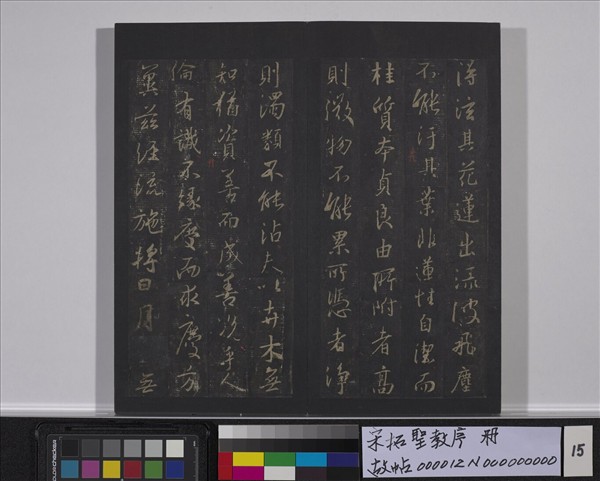 得泫其花蓮出淥波飛塵
不能汙其葉非蓮性自潔而
桂質本貞良由所附者高
則微物不能累所憑者淨
則濁類不能沾夫以卉木無
知猶資善而成善況乎人
倫有識不緣慶而求慶方
冀茲經流施將日月 無
宋拓聖教序 冊
故帖000012N000000000
15